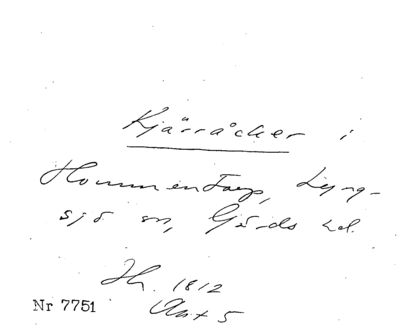 Kjärråcker i
Hommentorp, Lyng-
sjö sn, Gärds hd.
Jh. 1812
Akt 5
Nr 7751